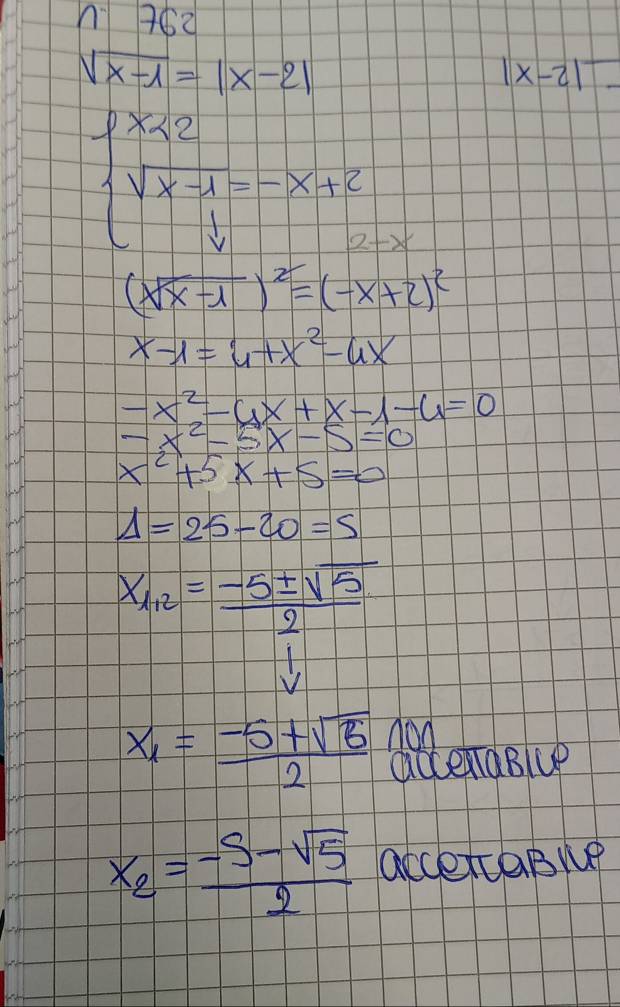 n 762
√x-1 = |x-2| |x-2|=
{ x<2
√x-1 = -x+2
↓
2-x
(√x-1)² = (-x+2)²
x-1 = 4+x²-4x
-x²-4x+x-1-4=0
-x²-5x-5=0
x²+5x+5=0
Δ=25-20=5
x₁,₂ = (-5±√5)/2
↓
x₁ = (-5+√5)/2 non
accettabile
x₂ = (-5-√5)/2 accettabile